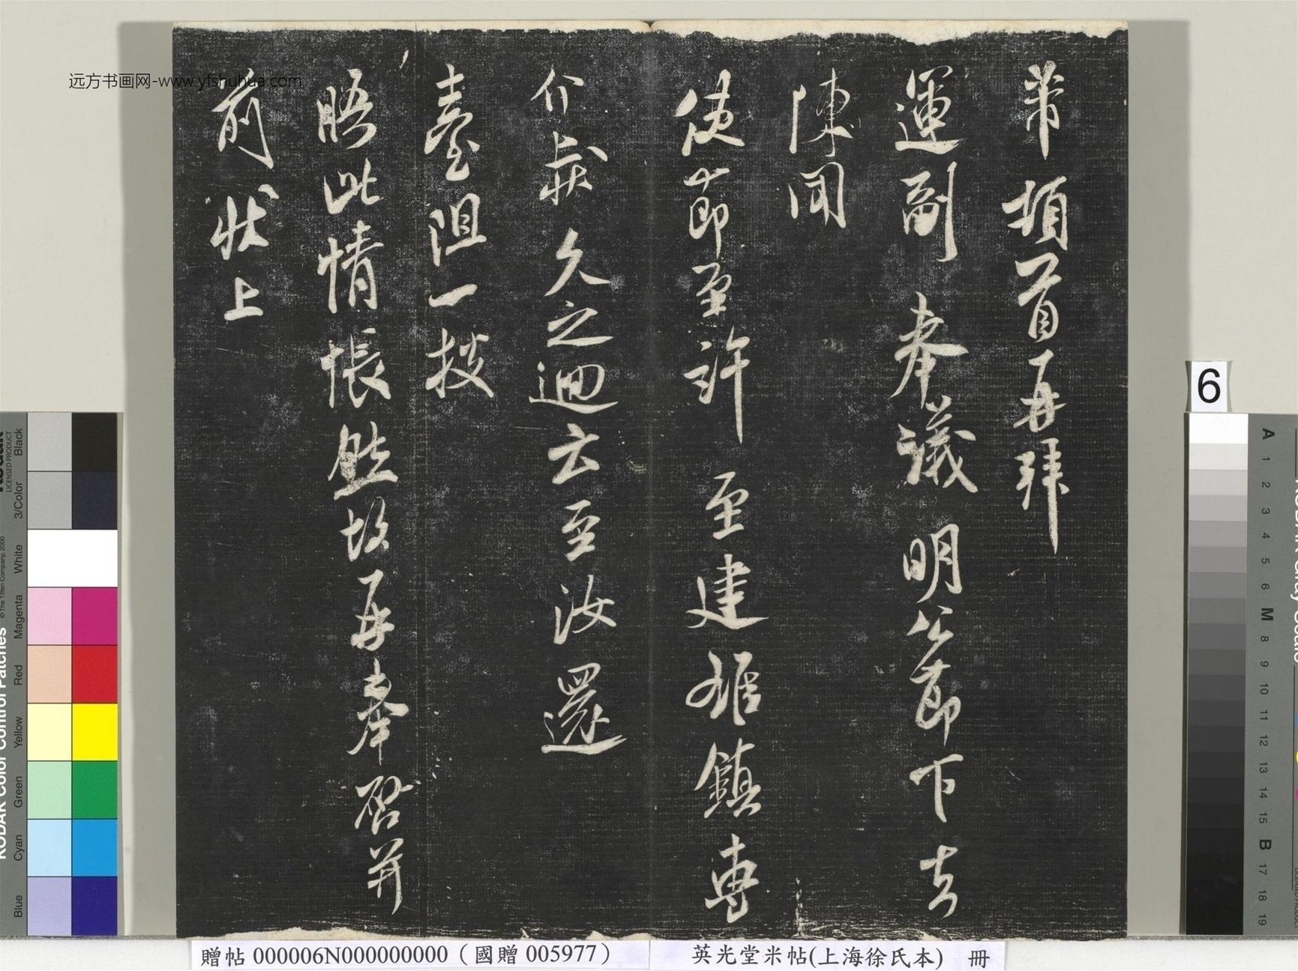 芾頓首再拜
運副奉議明公節下去
陳聞
使節至許至建雄鎮專
介哉久之迴云至汝還
臺阻一拨
晤此情悵然故再奉啓并
前狀上
远方书画网-www.yfshuhua.com
6
贈帖 000006N000000000（國贈 005977）
英光堂米帖(上海徐氏本) 冊
Black
3/Color
White
Magenta
Red
Yellow
Green
Cyan
Blue
KODAK Color Control Patches
LICENSED PRODUCT
© The Tiffen Company, 2000
A 1 2 3 4 5 6 M 8 9 10 11 12 13 14 15 B 17 18 19